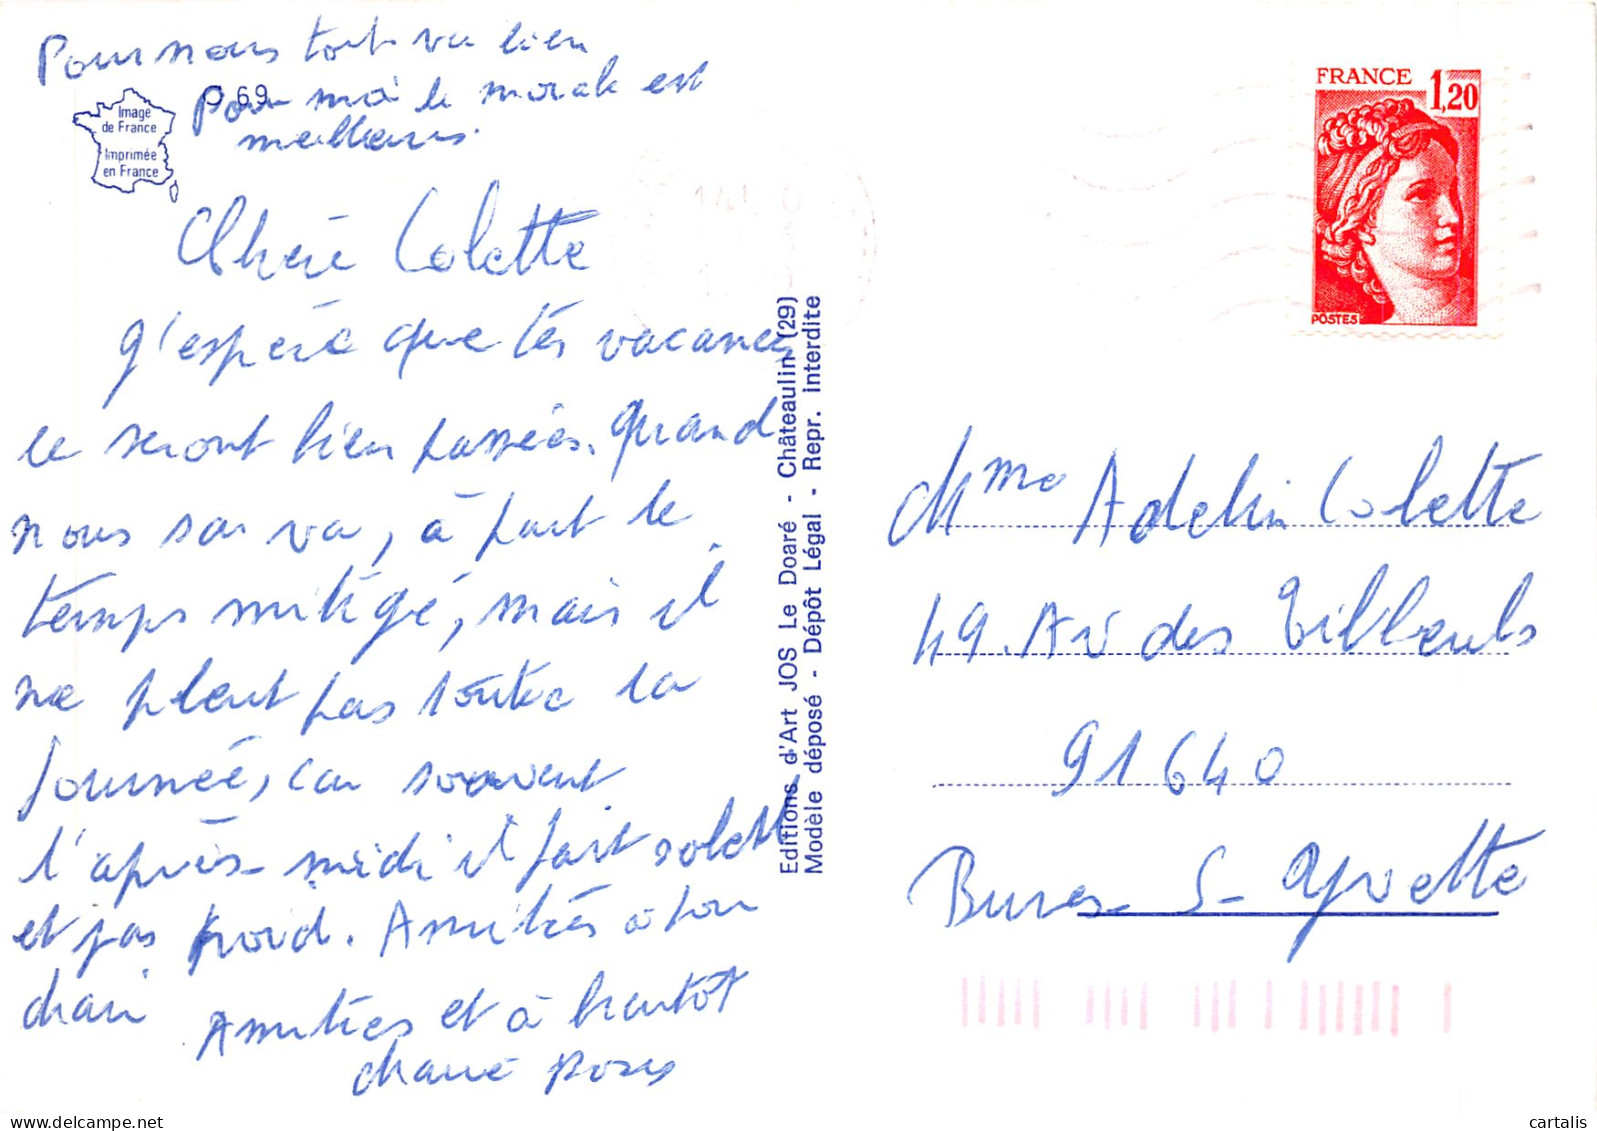 Pour nous tout va bien
Pour moi le morale est
meilleurs.
C 69
Image
de France
Imprimée
en France
Chère Colette
J'espère que tes vacances
ce seront bien passées. Quand
nous sa va, à part le
temps mitigé, mais il
ne pleut pas toute la
journée, car souvent
l'après-midi il fait soleil
et pas froid. Amitiés à ton
mari
Amitiés et à bientôt
Marie Rose
Editions d'Art JOS Le Doaré - Châteaulin (29)
Modèle déposé - Dépôt Légal - Repr. interdite
FRANCE
1,20
POSTES
Mme Adelin Colette
49. Av des Tilleuls
91640
Bures S- Yvette
cartalis